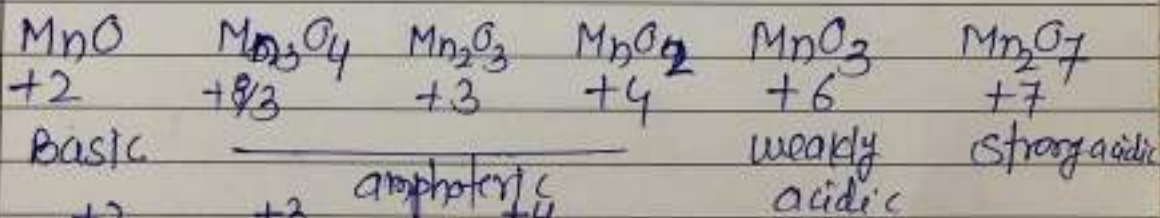 MnO Mn3O4 Mn2O3 MnO2 MnO3 Mn2O7
+2 +8/3 +3 +4 +6 +7
Basic amphoteric weakly acidic strong acidic
+2 +3 +4